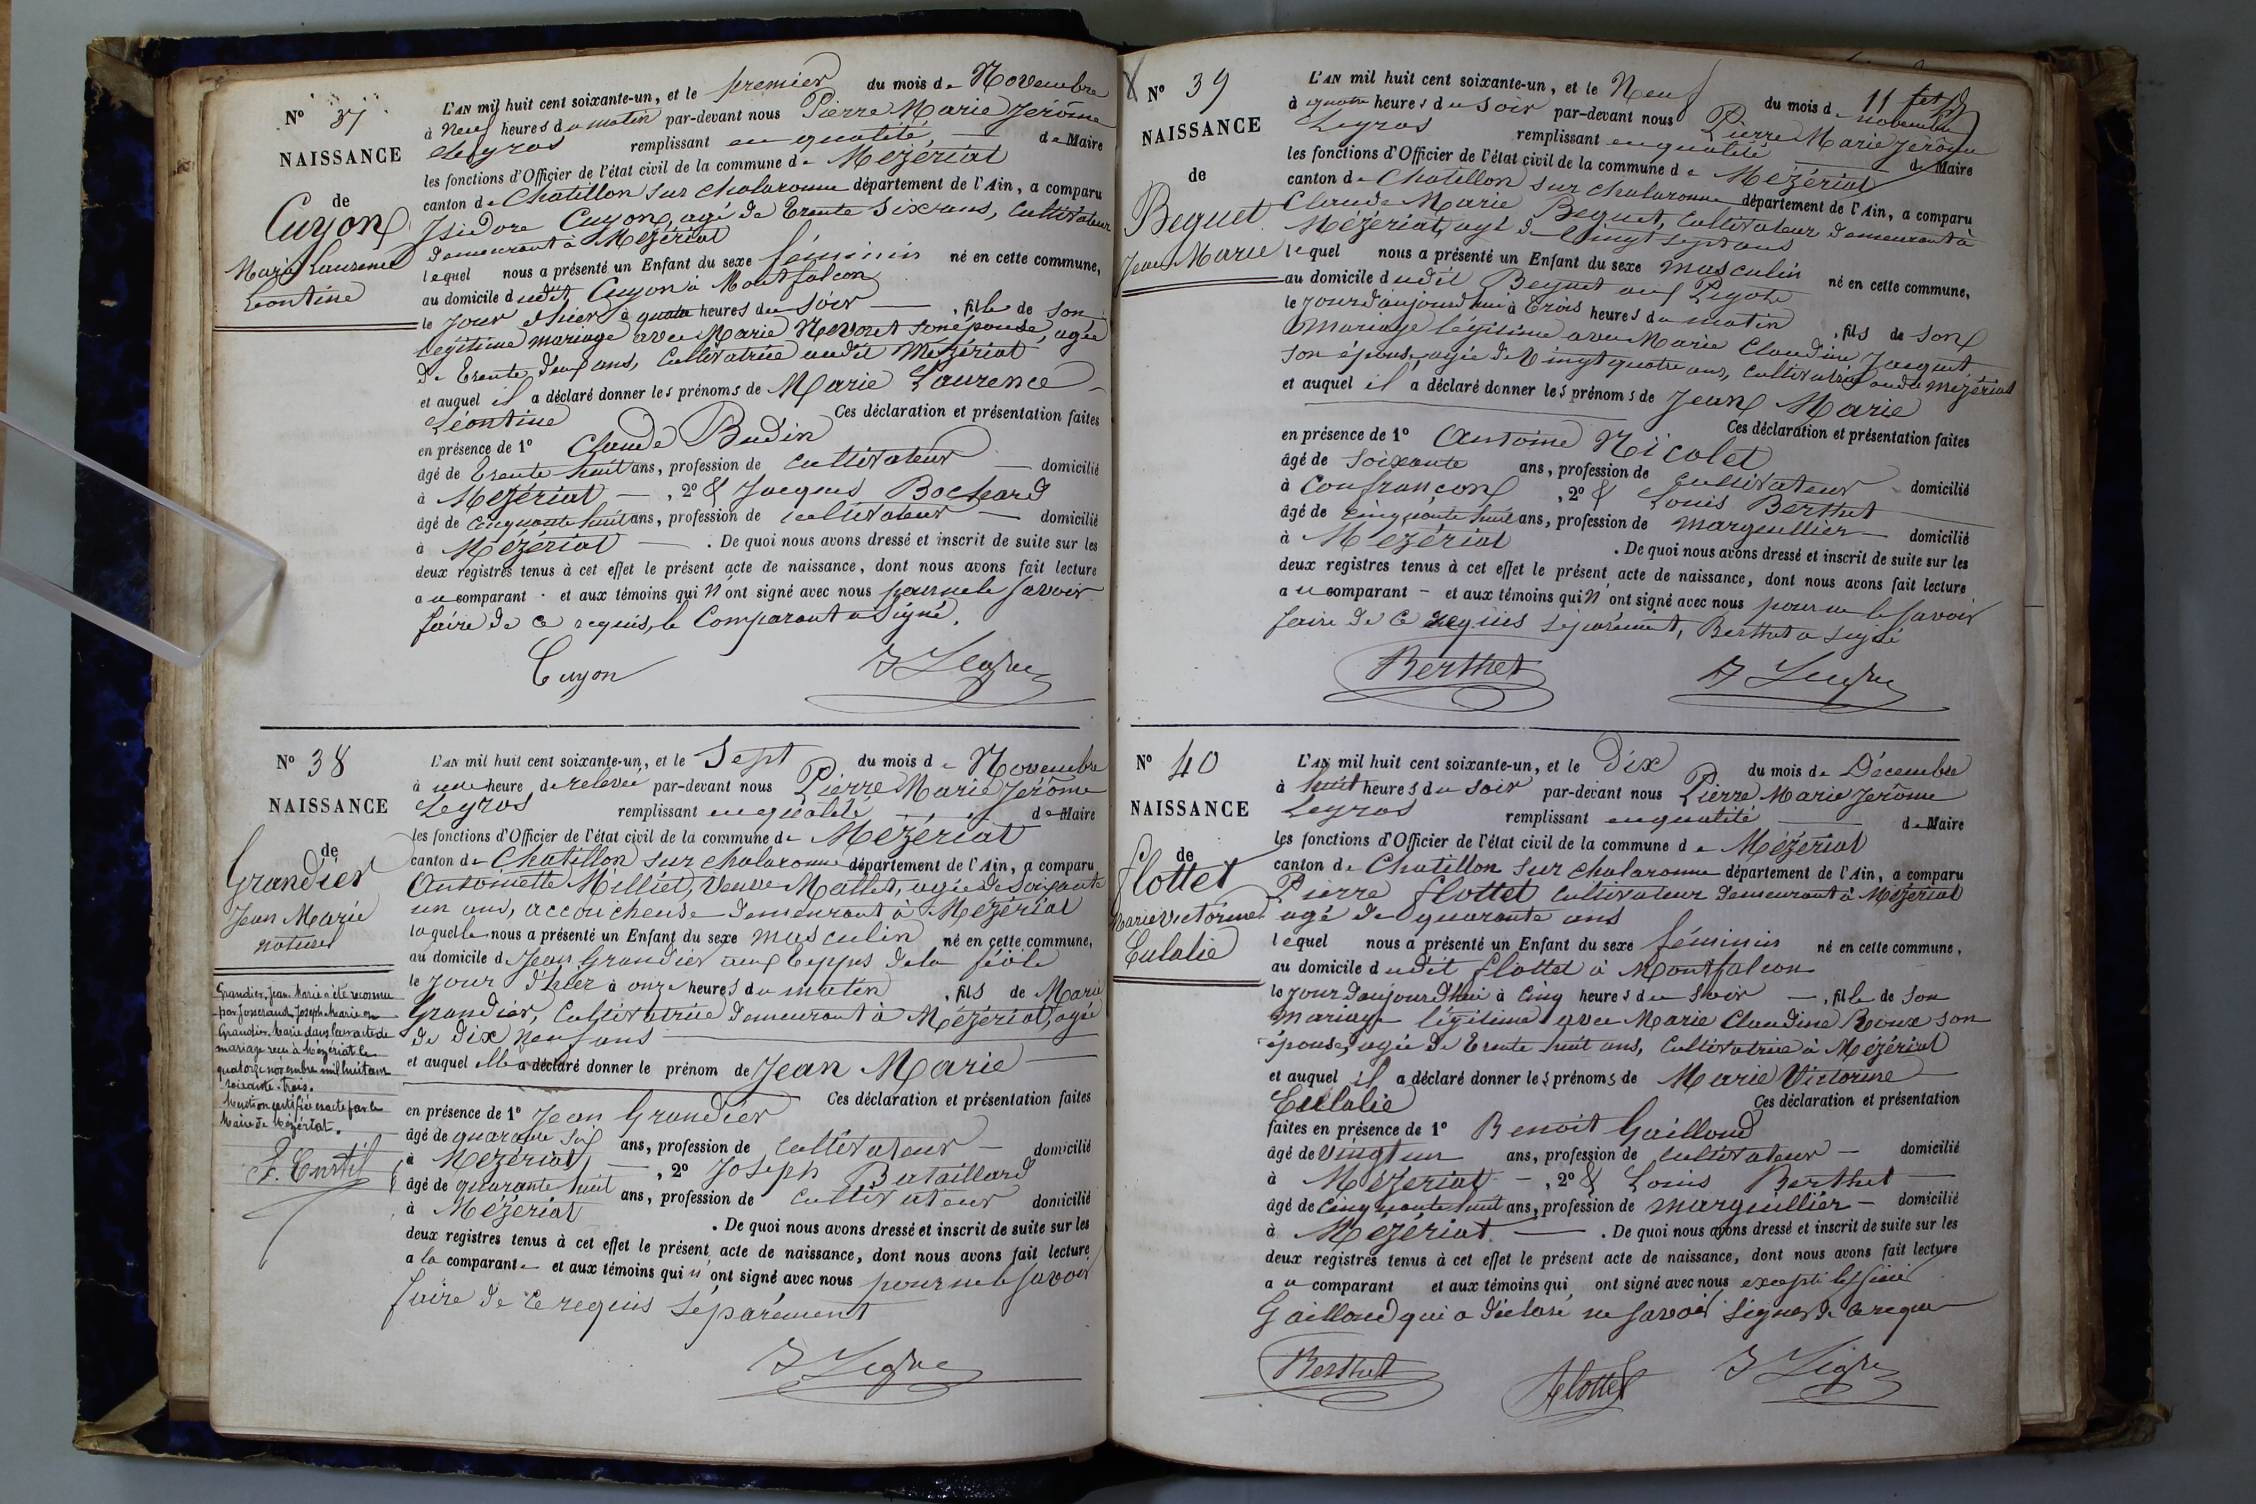 N° 37
NAISSANCE
de
Cuyon
Marie Laurence
Léontine
L'AN mil huit cent soixante-un, et le premier du mois de Novembre
à Neuf heures du matin par-devant nous Pierre Marie Jérôme
Legros remplissant en qualité de Maire
les fonctions d'Officier de l'état civil de la commune de Mézériat
canton de Chatillon sur chalaronne département de l'Ain, a comparu
Isidore Cuyon, agé de trente six ans, Cultivateur
demeurant à Mézériat
lequel nous a présenté un Enfant du sexe féminin né en cette commune,
au domicile dudit Cuyon à Montfalcon
le jour d'hier à quatre heures du soir, fille de son
légitime mariage avec Marie Nevoret son épouse, agée
de trente deux ans, Cultivatrice audit Mézériat
et auquel il a déclaré donner les prénoms de Marie Laurence
Léontine Ces déclaration et présentation faites
en présence de 1° Claude Budin
âgé de trente huit ans, profession de cultivateur domicilié
à Mézériat, 2° & Jacques Bochard
âgé de cinquante huit ans, profession de cultivateur domicilié
à Mézériat. De quoi nous avons dressé et inscrit de suite sur les
deux registres tenus à cet effet le présent acte de naissance, dont nous avons fait lecture
au comparant et aux témoins qui n'ont signé avec nous pour ne le savoir
faire de ce requis, le Comparant a signé.
Cuyon
N° 38
NAISSANCE
de
Grandier
Jean Marie
naturel
Grandier Jean Marie a été reconnu
par Josserand Joseph Marie en
Grandier Marie dans leur acte de
mariage reçu à Mézériat le
quatorze novembre mil huit cent
soixante-trois.
Mention certifiée exacte par le
Maire de Mézériat.
L'AN mil huit cent soixante-un, et le Sept du mois de Novembre
à une heure de relevée par-devant nous Pierre Marie Jérôme
Legros remplissant en qualité de Maire
les fonctions d'Officier de l'état civil de la commune de Mézériat
canton de Chatillon sur chalaronne département de l'Ain, a comparu
Antoinette Milliet, veuve Mallet, agée de soixante
un ans, accoucheuse demeurant à Mézériat
laquelle nous a présenté un Enfant du sexe masculin né en cette commune,
au domicile de Jean Grandier aux
le jour d'hier à onze heures du matin, fils de Marie
Grandier, Cultivatrice demeurant à Mézériat, agée
de dix neuf ans
et auquel elle a déclaré donner le prénom de Jean Marie
Ces déclaration et présentation faites
en présence de 1° Jean Grandier
âgé de quarante six ans, profession de cultivateur domicilié
à Mézériat, 2° Joseph Bataillard
âgé de quarante huit ans, profession de cultivateur domicilié
à Mézériat. De quoi nous avons dressé et inscrit de suite sur les
deux registres tenus à cet effet le présent acte de naissance, dont nous avons fait lecture
a la comparante et aux témoins qui n'ont signé avec nous pour ne le savoir
faire de ce requis séparément
N° 39
NAISSANCE
de
Beguet
Jean Marie
L'AN mil huit cent soixante-un, et le Neuf du mois de novembre
à quatre heures du soir par-devant nous Pierre Marie Jérôme
Legros remplissant en qualité de Maire
les fonctions d'Officier de l'état civil de la commune de Mézériat
canton de Chatillon sur chalaronne département de l'Ain, a comparu
Claude Marie Beguet, Cultivateur demeurant à
Mézériat, agé de vingt sept ans
lequel nous a présenté un Enfant du sexe masculin né en cette commune,
au domicile dudit Beguet aux
le jour d'aujourd'hui à trois heures du matin, fils de son
mariage légitime avec Marie Claudine Jacquet
son épouse, agée de vingt quatre ans, cultivatrice audit Mézériat
et auquel il a déclaré donner les prénoms de Jean Marie
Ces déclaration et présentation faites
en présence de 1° Antoine Nicolet
âgé de soixante ans, profession de cultivateur domicilié
à Confrançon, 2° & Louis Berthet
âgé de cinquante huit ans, profession de marguillier domicilié
à Mézériat. De quoi nous avons dressé et inscrit de suite sur les
deux registres tenus à cet effet le présent acte de naissance, dont nous avons fait lecture
au comparant et aux témoins qui n'ont signé avec nous pour ne le savoir
faire de ce requis séparément, Berthet a signé
Berthet
N° 40
NAISSANCE
de
flottet
Marie Victorine
Eulalie
L'AN mil huit cent soixante-un, et le Dix du mois de Décembre
à huit heures du soir par-devant nous Pierre Marie Jérôme
Legros remplissant en qualité de Maire
les fonctions d'Officier de l'état civil de la commune de Mézériat
canton de Chatillon sur chalaronne département de l'Ain, a comparu
Pierre flottet cultivateur demeurant à Mézériat
agé de quarante ans
lequel nous a présenté un Enfant du sexe féminin né en cette commune,
au domicile dudit flottet à Montfalcon
le jour d'aujourd'hui à cinq heures du soir, fille de son
mariage légitime avec Marie Claudine Roux son
épouse, agée de trente huit ans, cultivatrice à Mézériat
et auquel il a déclaré donner les prénoms de Marie Victorine
Eulalie Ces déclaration et présentation
faites en présence de 1° Benoit Gailloud
âgé de vingt un ans, profession de cultivateur domicilié
à Mézériat, 2° & Louis Berthet
âgé de cinquante huit ans, profession de marguillier domicilié
à Mézériat. De quoi nous avons dressé et inscrit de suite sur les
deux registres tenus à cet effet le présent acte de naissance, dont nous avons fait lecture
au comparant et aux témoins qui ont signé avec nous excepté le
Gailloud qui a déclaré ne savoir signer de ce requis
Berthet
flottet